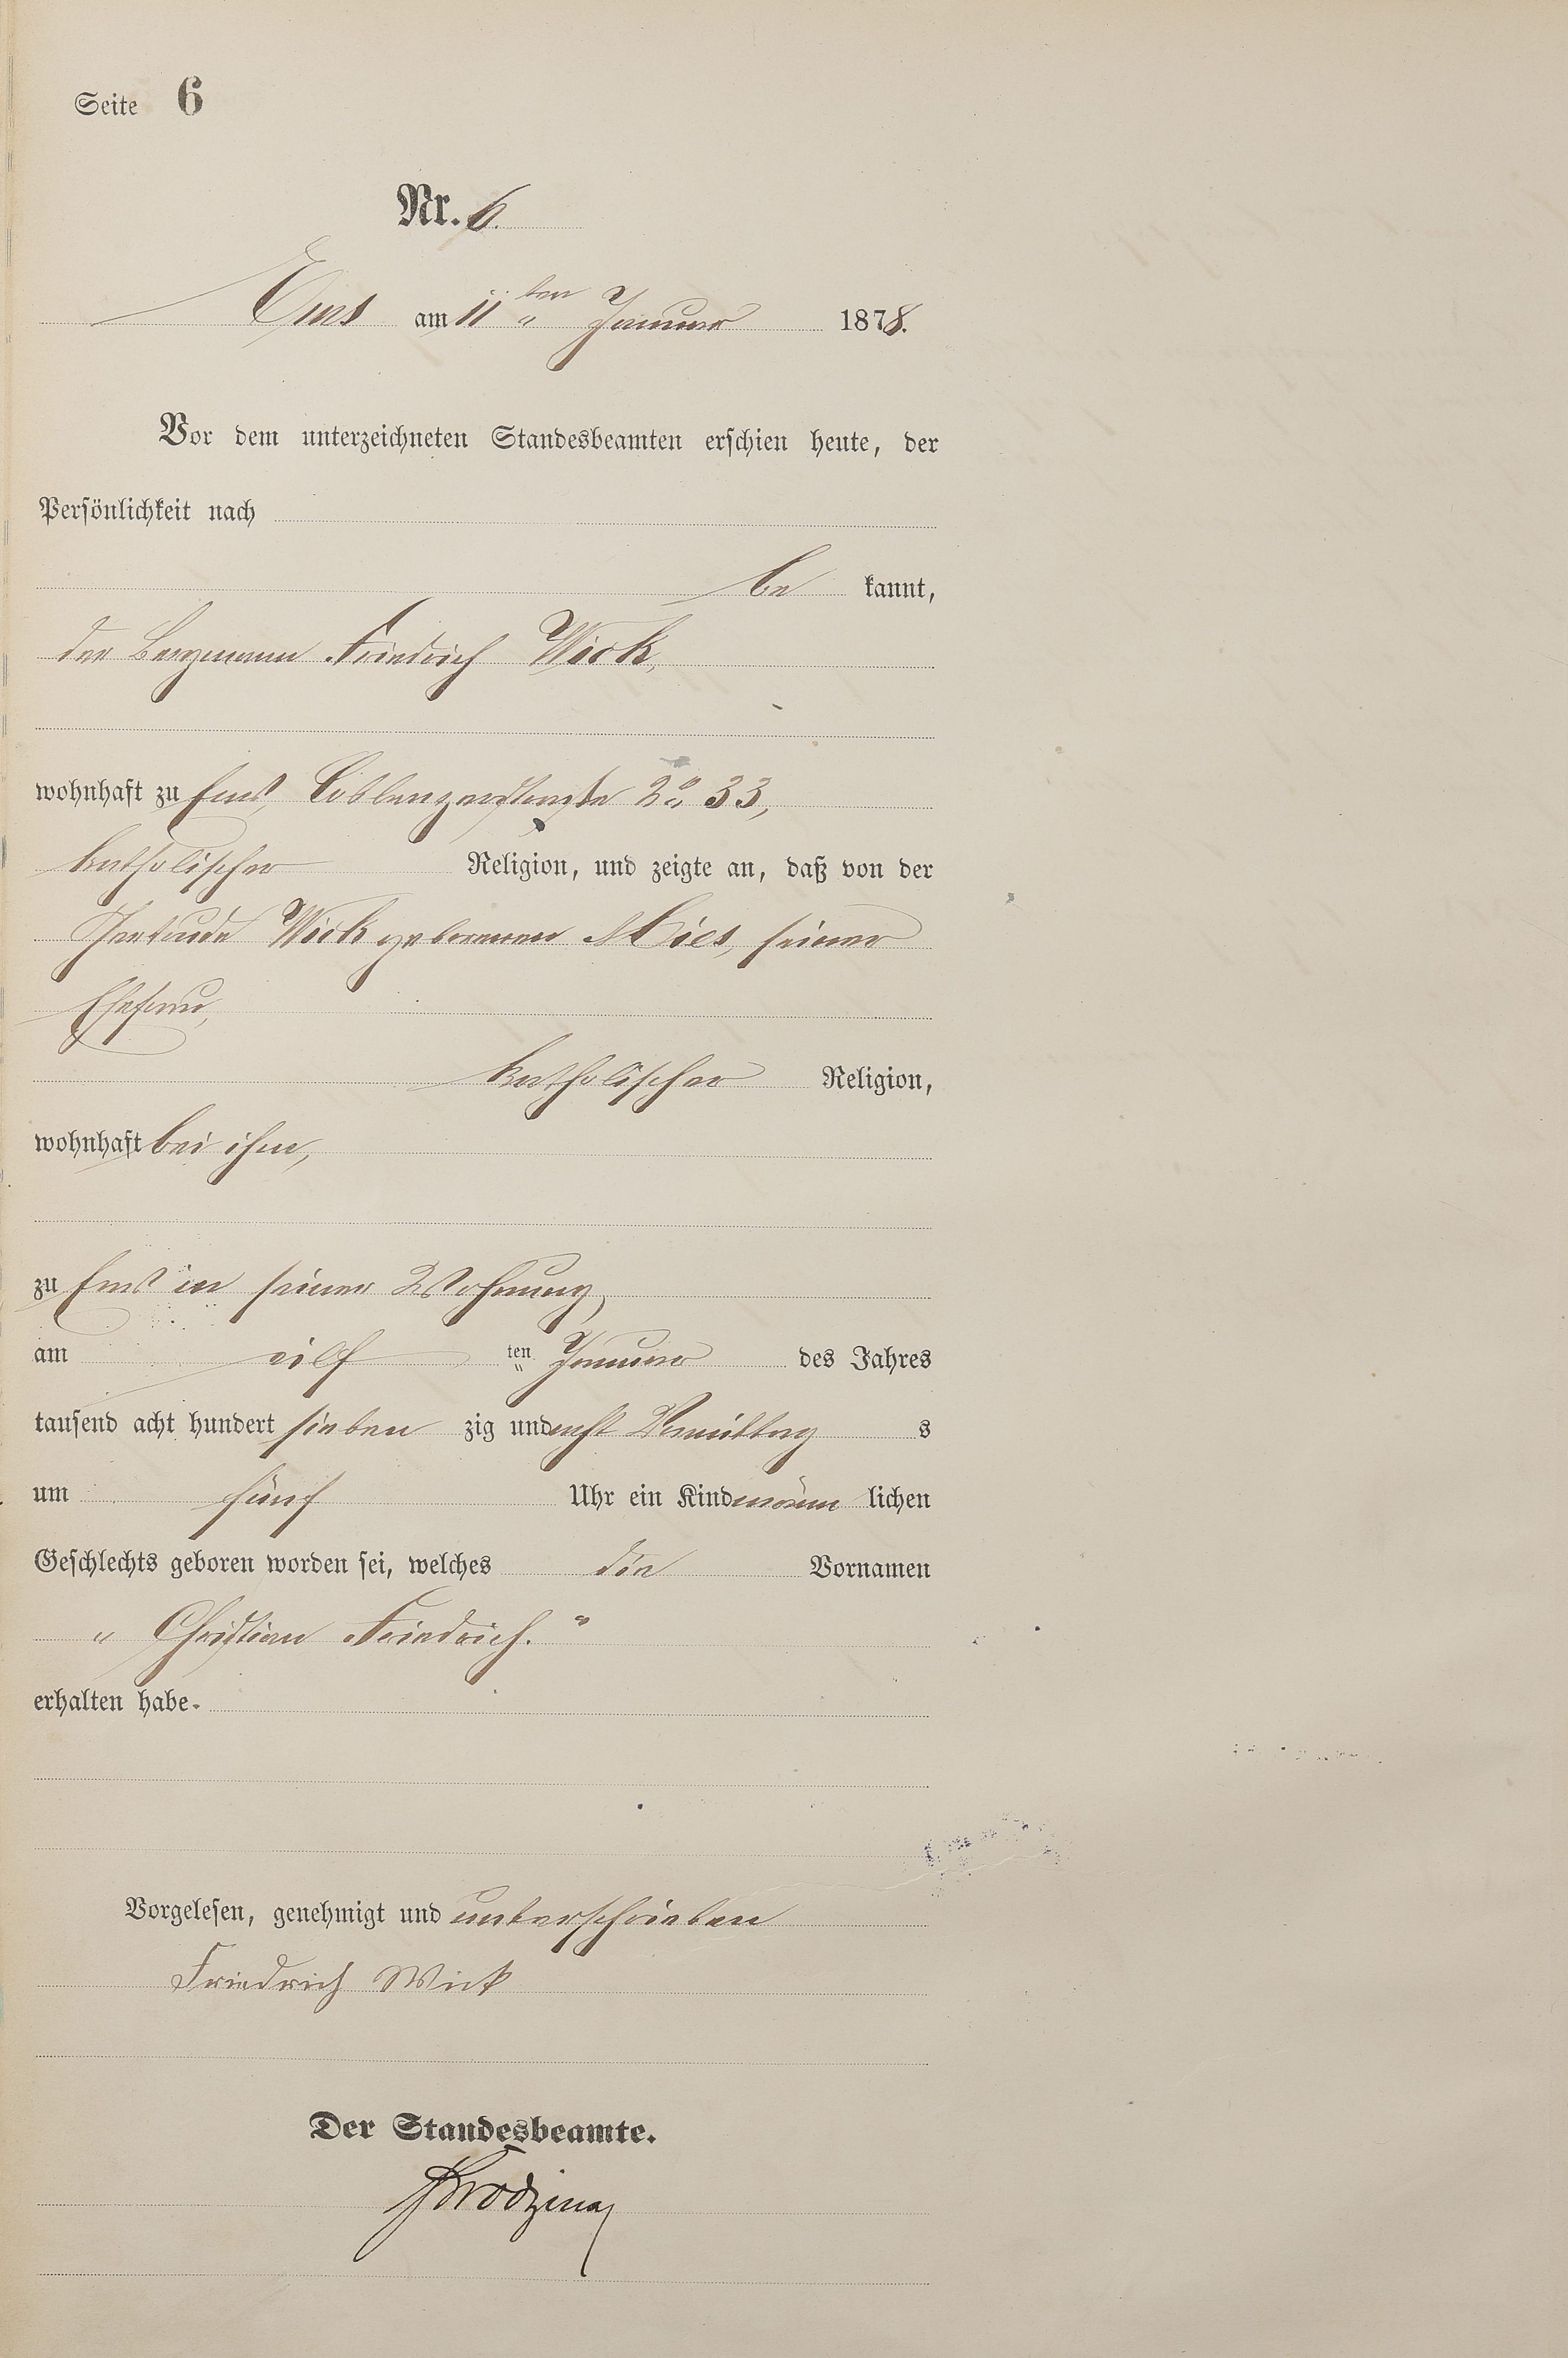 Seite 6
Nr. 6.
Ems am 11ten Januar 1878.
Vor dem unterzeichneten Standesbeamten erschien heute, der
Persönlichkeit nach
be kannt,
der Bergmann Friedrich Wick,
wohnhaft zu Ems, Coblenzerstraße No 33,
katholischer Religion, und zeigte an, daß von der
Gertrude Wick geborenen Mies, seiner
Ehefrau,
katholischer Religion,
wohnhaft bei ihm,
zu Ems in seiner Wohnung,
am eilf ten Januar des Jahres
tausend acht hundert sieben zig und acht Vormittag s
um fünf Uhr ein Kind männ lichen
Geschlechts geboren worden sei, welches die Vornamen
„ Christian Friedrich. “
erhalten habe.
Vorgelesen, genehmigt und unterschrieben
Friedrich Wick
Der Standesbeamte.